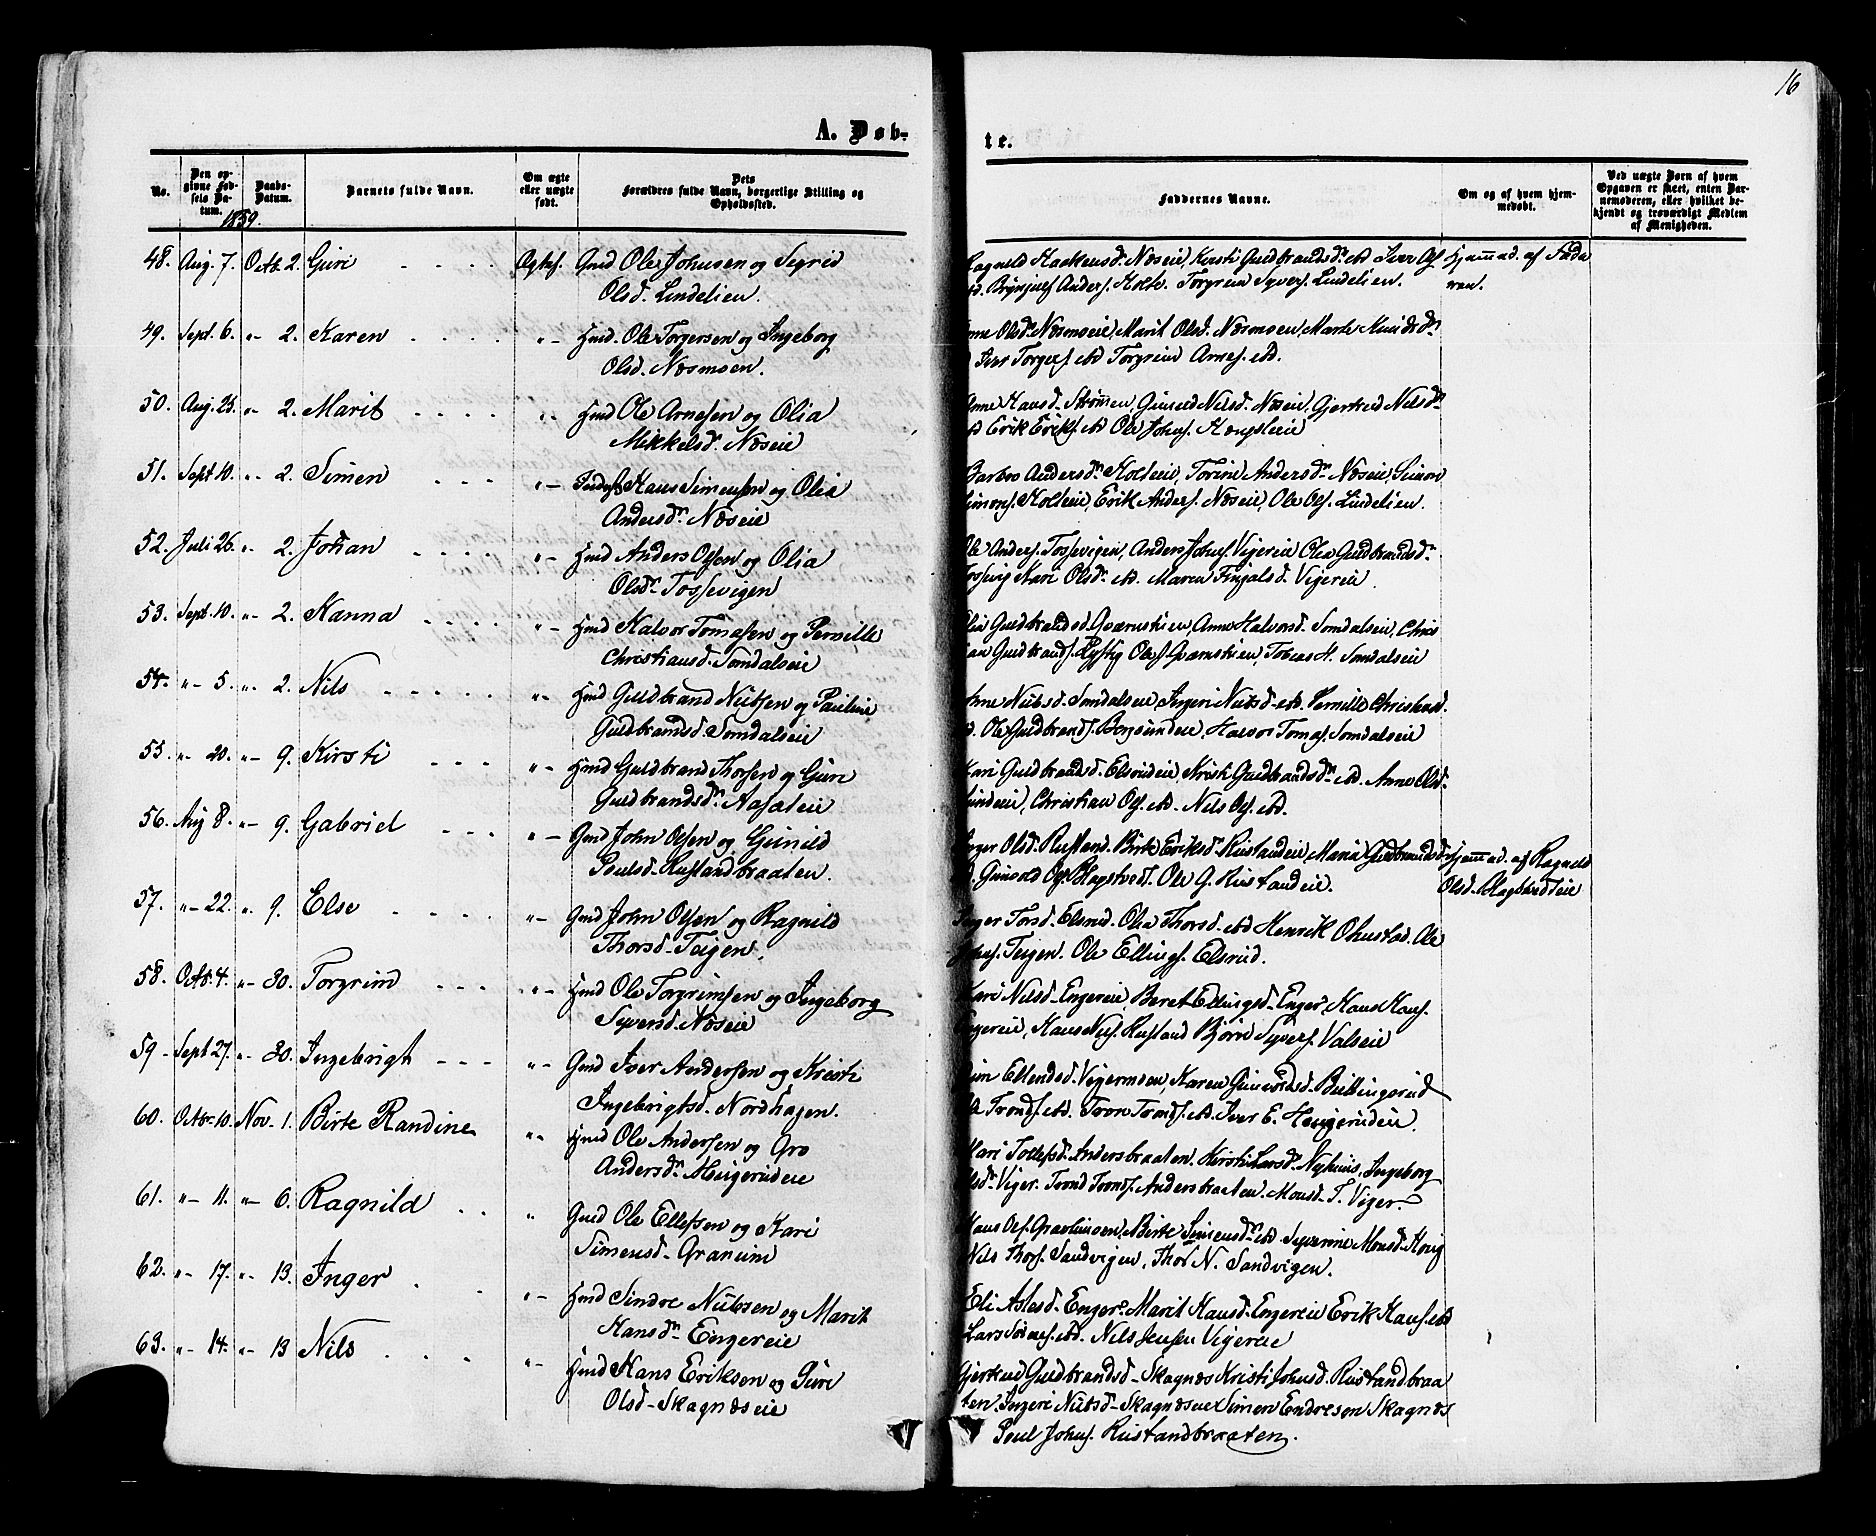 16
A. Døb-
te.
No.
Den op-
givne Fød-
sels Da-
tum.
Daabs-
Datum.
Barnets fulde Navn.
Om ægte
eller uægte
født.
Dets
Forældres fulde Navn, borgerlige Stilling og
Opholdssted.
Faddernes Navne.
Om og af hvem hjem-
medøbt.
Ved uægte Børn af hvem
Opgaven er skeet, enten Bar-
nemoderen, eller hvilket be-
kjendt og troværdigt Medlem
af Menigheden.
1859.
48. Aug. 7. Octb. 2. Guri Ægtef. Gmd Ole Johnsen og Sigrid
Olsd. Lindelien.
Ragnild Haakensd. Næseie, Kirsti Guldbrandsd. ibd Iver
Brynjulf Anders. Holte. Torgrim Syvers. Lindelien.
Hjemmed. af Fade
ren.
49. Sept. 6. " 2. Karen "- Hmd. Ole Torgersen og Ingeborg
Olsd. Næsmoen.
Olsdr. Næsmoeie, Marit Olsd. Næsmoen, Marte
Iver Torgers. ibd Torgrim Arnes. ibd.
50. Aug. 28. " 2. Marit " Hmd Ole Arnesen og Olia
Mikkelsd. Næseie
Anne Hansd. Strømen, Gunild Nilsd. Næseie, Gjertrud Nilsdr
Erik Eriks. ibd Ole Johns. Hougsleeie
51. Sept 10. " 2. Simen "- Inderst Hans Simensen og Olia
Andersdr. Næseie
Barbro Andersdr. Holteie, Torine Andersdr. Næseie, Simon
Simons. Holteie, Erik Anders. Næseie, Ole Ols. Lindelien.
52. Juli 26. " 2. Johan "- Hmd Anders Olsen og Olia
Olsdr. Tossevigen
Ole Anders. Tossevigen, Anders Johns. Vigereie Olea Guldbrandsdr.
Tossevig Kari Olsdr. ibd. Maren Fingalsd. Vigereie.
53. Sept. 10. " 2. Hanna "- Hmd Halvor Tomasen og Pernille
Christiansd. Somdalseie
Olia Guldbrandsd. Qværnstien, Anne Halvorsd. Somdalseie, Chris
tian Guldbrands. Rystig Ole Qværnstien, Tobias H. Somdalseie
54. " 5. " 2. Nils "- Hmd Guldbrand Nubsen og Pauline
Guldbrandsd. Somdalseie
Anne Nubsd. Somdalseie, Ingeri Nubsd ibd. Pernille Christiansd.
ibd. Ole Guldbrands. Bergsundeie, Halvor Tomas. Somdalseie
55. " 20. " 9. Kirsti "- Hmd Guldbrand Thorsen og Guri
Guldbrandsdr. Aasateie
Kari Guldbrandsd. Elsrudeie, Kristi Guldbrandsdr. ibd. Anne Olsd.
Christian Ols. ibd. Nils Ols. ibd.
56. Aug 8. " 9. Gabriel "- Gmd John Olsen og Gunild
Poulsd. Rustandbraaten.
Inger Olsd. Rustand. Birte Eriksd. Rustandeie, Maria Guldbrandsd.
Gunvald Ols. Ole G. Rustandeie.
Hjemmed. af Ragnild
Olsd.
57. " 22. " 9. Else "- Gmd John Olsen og Ragnild
Thorsd. Teigen.
Inger Torsd. Elsrud. Olia Thorsd. ibd Henrik Ohustad. Ole
Johns. Teigen. Ole Ellings. Elsrud.
58. Octb. 4. " 30. Torgrim "- Hmd Ole Torgrimsen og Ingeborg
Syversd. Næseie
Kari Nilsd. Engereie, Beret Ellingsd. Enger, Hans Hans.
Engereie, Hans Nils. Rustand Bjørn Syvers. Valseie
59 Sept 27. " 30. Ingebrigt "- Gmd Iver Andersen og Kristi
Ingebrigtsd. Nordhagen.
Ellendsd. Vigermoen, Karen Gunvordsd. Bullingsrud
Tronds. ibd. Tron Tronds. ibd. Iver E. Hengerudeie.
60. Octbr 10. Nov. 1. Birte Randine " Hmd Ole Andersen og Gro
Andersdr. Hengerudeie
Kari Tollefsd. Andersbraaten. Kirsti Larsdr. Nyhuus, Ingeborg
Olsdr. Viger. Trond Tronds. Andersbraaten. Monsd. T. Viger.
61. " 11. " 6. Ragnild " Gmd Ole Ellefsen og Kari
Simensd. Granum
Hans Ols. Birte Simensdr. ibd. Syverine Monsd.
Nils Thors. Sandvigen, Thor N. Sandvigen.
62. " 17. " 13. Inger "- Hmd Sindre Nubsen og Marit
Hansdr. Engereie
Eli Aslesd. Enger. Marit Hansd. Engereie Erik Hans. ibd
Lars ibd. Nils Jensen Vigereie
63. " 14. " 13 Nils "- Hmd Hans Eriksen og Guri
Olsd. Skagnæseie
Gjertrud Guldbrandsd. Skagnæs Kristi Johnsd. Rustandbraa
ten. Ingeri Nubsd. Skagnæseie Simen Endresen Skagnæs
Poul Johns. Rustandbraaten.